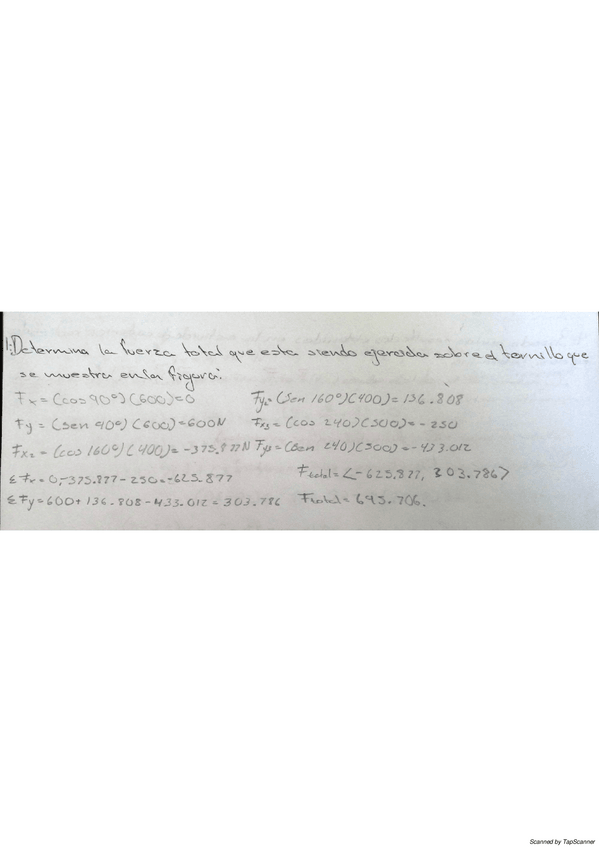 1. Determina la fuerza total que esta siendo ejercida sobre el tornillo que
se muestra en la figura:
Fx = (cos 90°)(600)=0 Fy2 (Sen 160°)(400)=136.808
Fy = (sen 90°)(600)=600N Fx3 = (cos 240)(500)= -250
Fx2 = (cos 160°)(400)= -375.877N Fy3=(Sen 240)(500)=-433.012
ΣFx=0,-375.877-250=-625.877 Ftotal=<-625.877, 303.786>
ΣFy=600+136.808-433.012=303.786 Ftotal=695.706.
Scanned by TapScanner